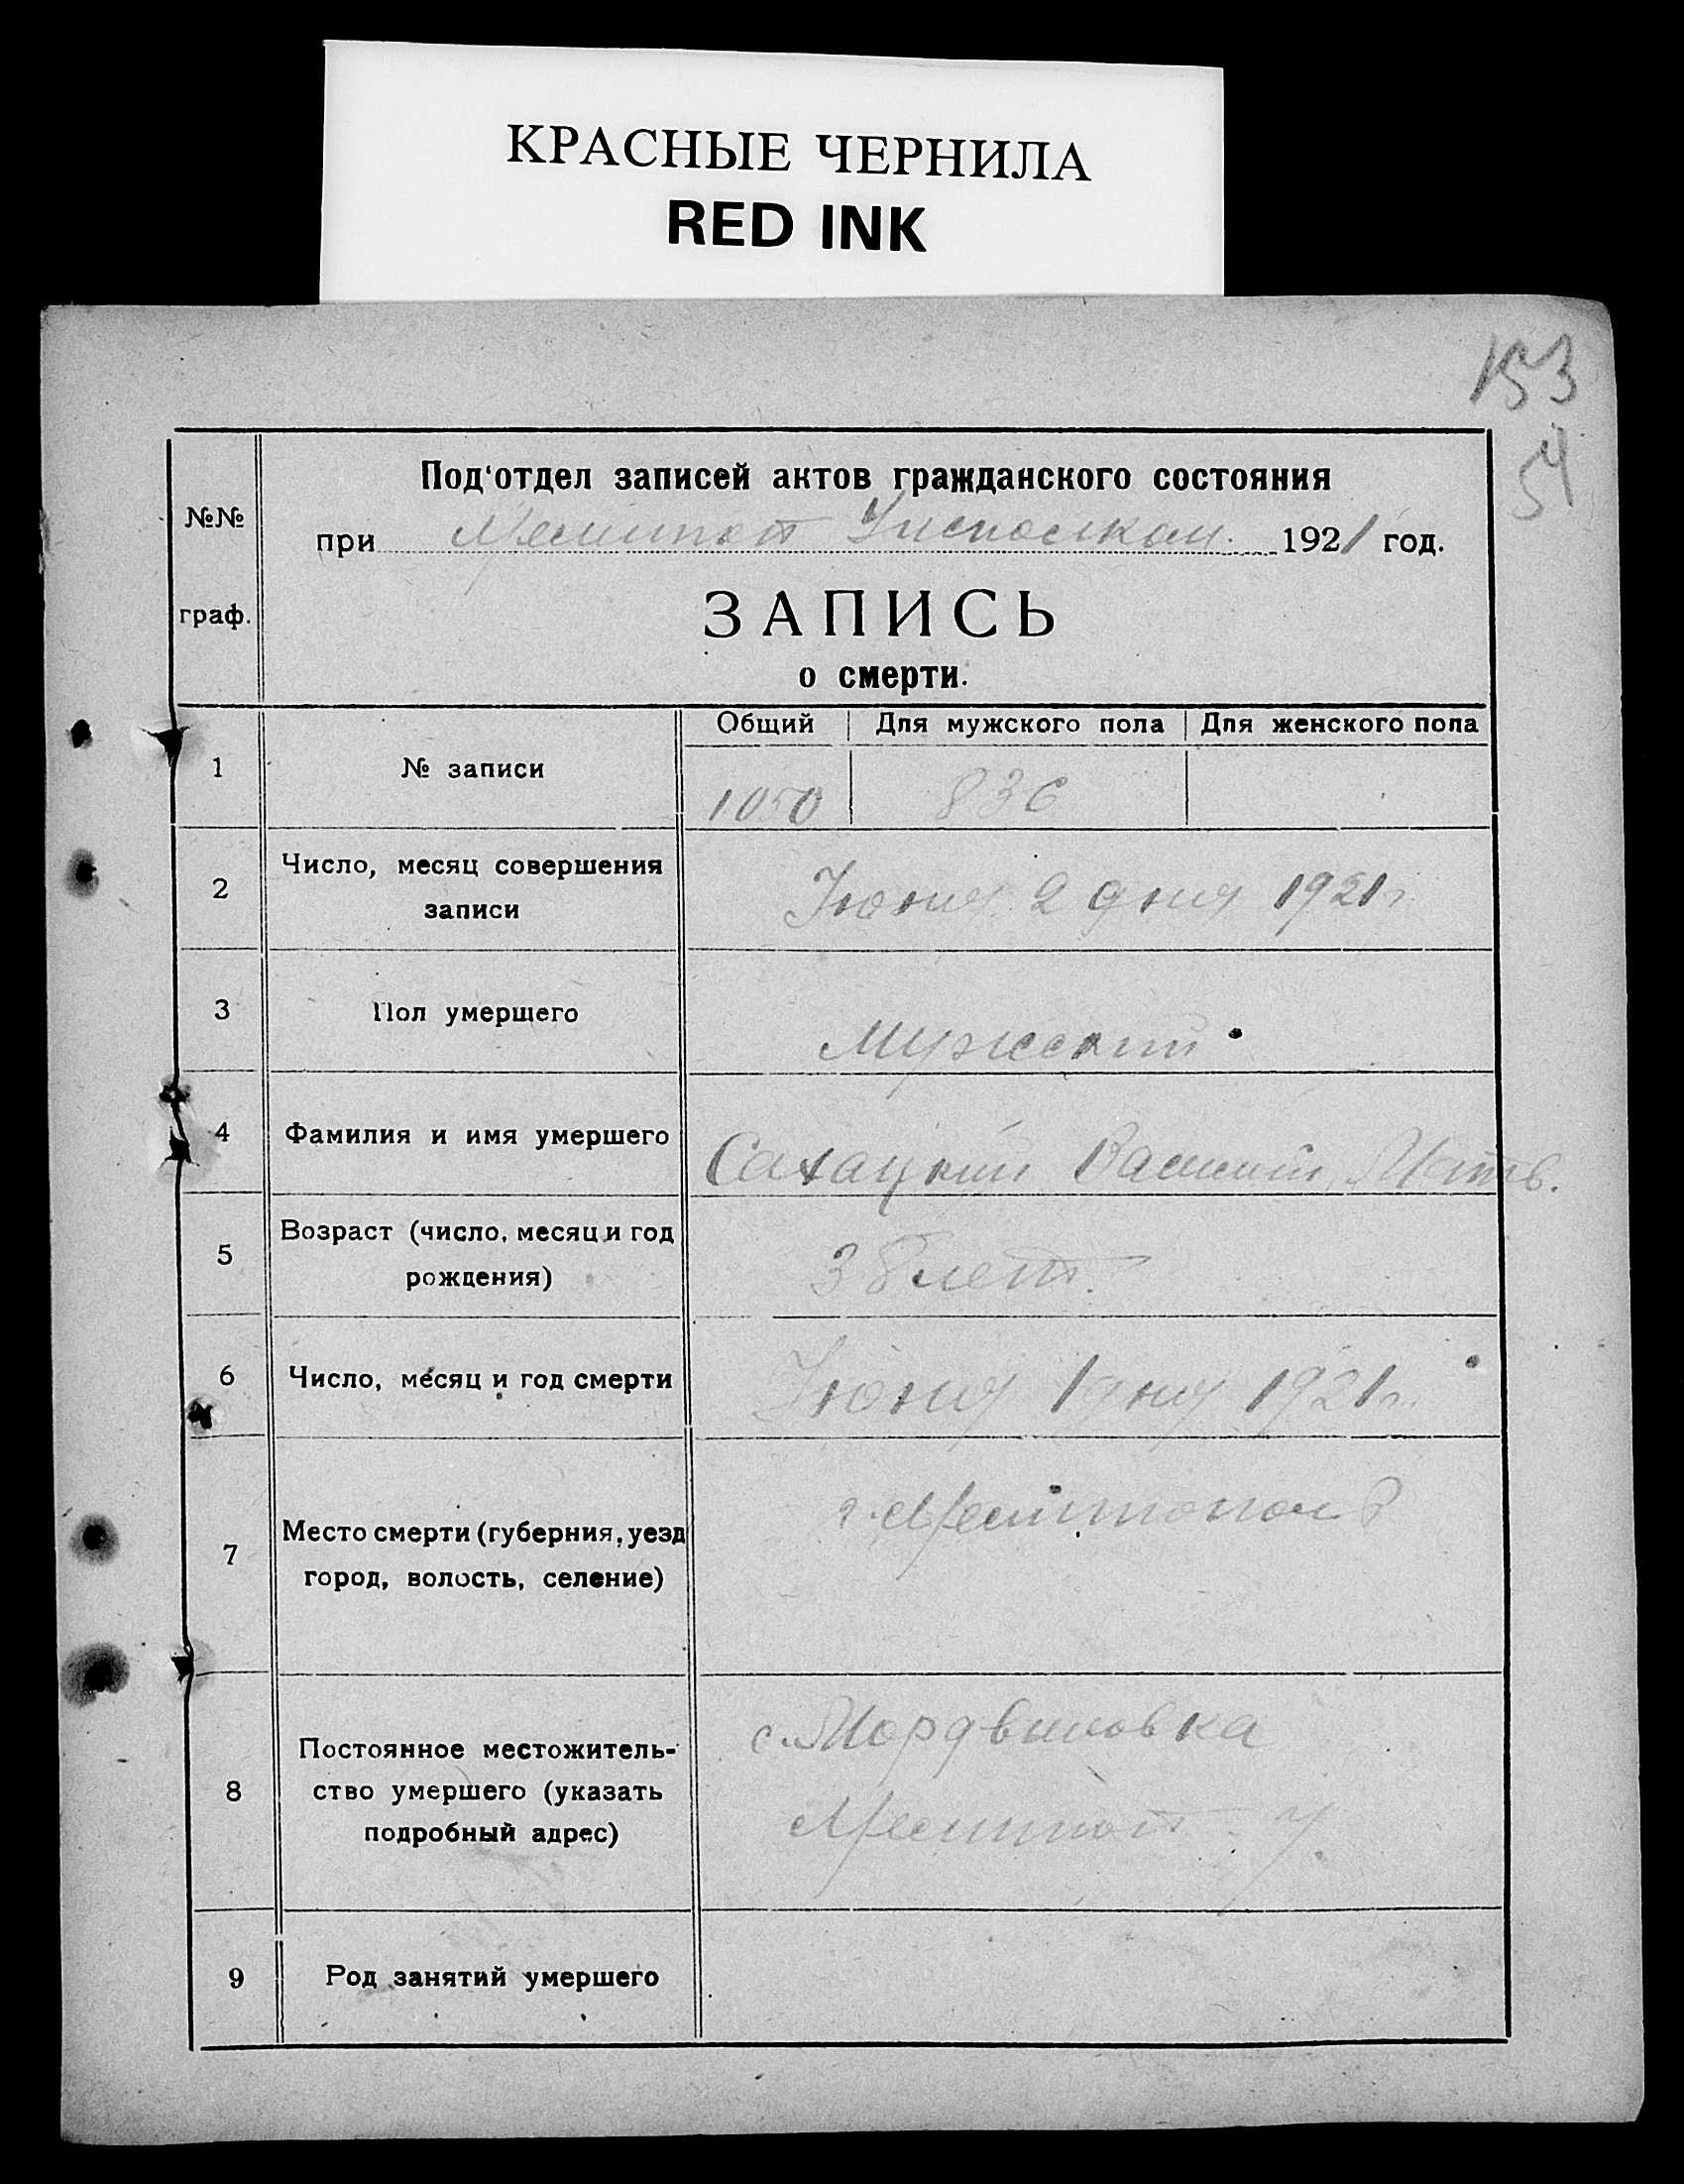 КРАСНЫЕ ЧЕРНИЛА
RED INK
153
54
Под'отдел записей актов гражданского состояния
№№
при Мелитоп Уисполком. 1921 год.
граф.
ЗАПИСЬ
о смерти.
Общий Для мужского пола Для женского пола
1 № записи
1050 836
2 Число, месяц совершения
записи
Июня 2 дня 1921 г
3 Пол умершего
Мужской
4 Фамилия и имя умершего
Сахацкий Василий Матв.
5 Возраст (число, месяц и год
рождения)
38 лет.
6 Число, месяц и год смерти
Июня 1 дня 1921 г.
7 Место смерти (губерния, уезд
город, волость, селение)
г. Мелитополь
8 Постоянное местожитель-
ство умершего (указать
подробный адрес)
с. Мордвиновка
Мелитоп У.
9 Род занятий умершего